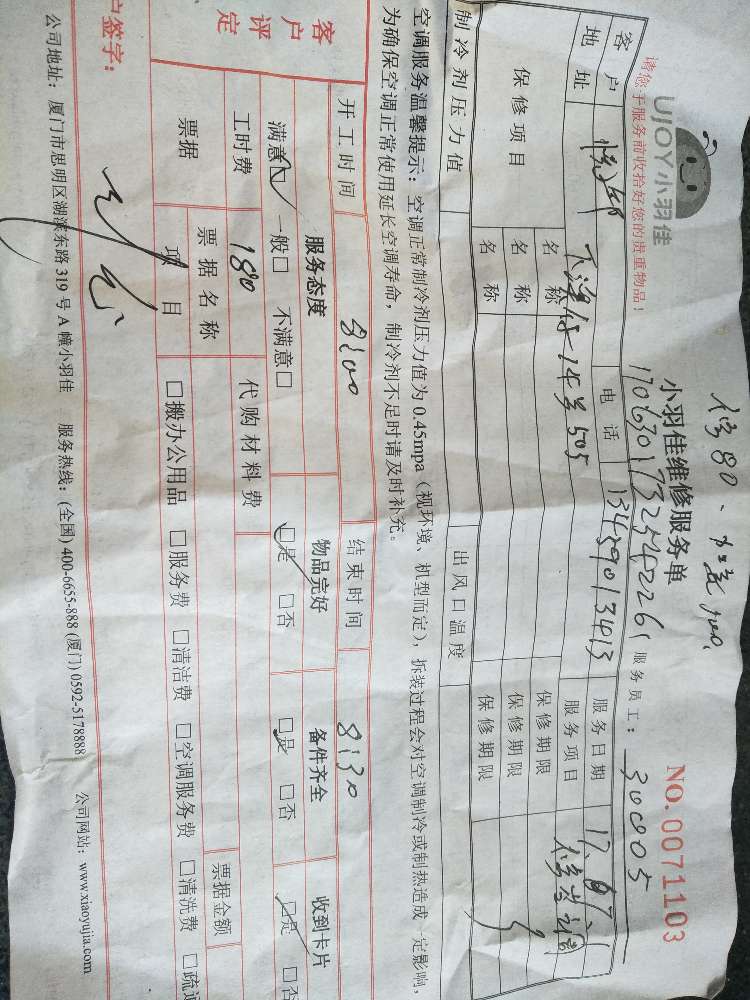 请您于服务前收拾好您的贵重物品！
UJOY小羽佳
小羽佳维修服务单
NO. 0071103
服务员工： 30805
客户
电话 13459013413
服务日期
地址 505
服务项目
保修项目 名称 保修期限
名称 保修期限
名称 保修期限
制冷剂压力值 出风口温度
空调服务温馨提示：空调正常制冷剂压力值为0.45mpa（视环境、机型而定），拆装过程会对空调制冷或制热造成一定影响，
为确保空调正常使用延长空调寿命，制冷剂不足时请及时补充。
开工时间 8:00 结束时间 8:30
客户评定
服务态度 物品完好 备件齐全 收到卡片
满意□ 一般□ 不满意□ □是 □否 □是 □否 □是 □否
工时费 180 代购材料费
票据 票据名称 票据金额
项目 □搬办公用品 □服务费 □清洁费 □空调服务费 □清洗费 □疏通
户签字：
公司地址：厦门市思明区湖滨东路319号A幢小羽佳 服务热线：(全国) 400-6655-888 (厦门) 0592-5178888 公司网站：www.xiaoyujia.com